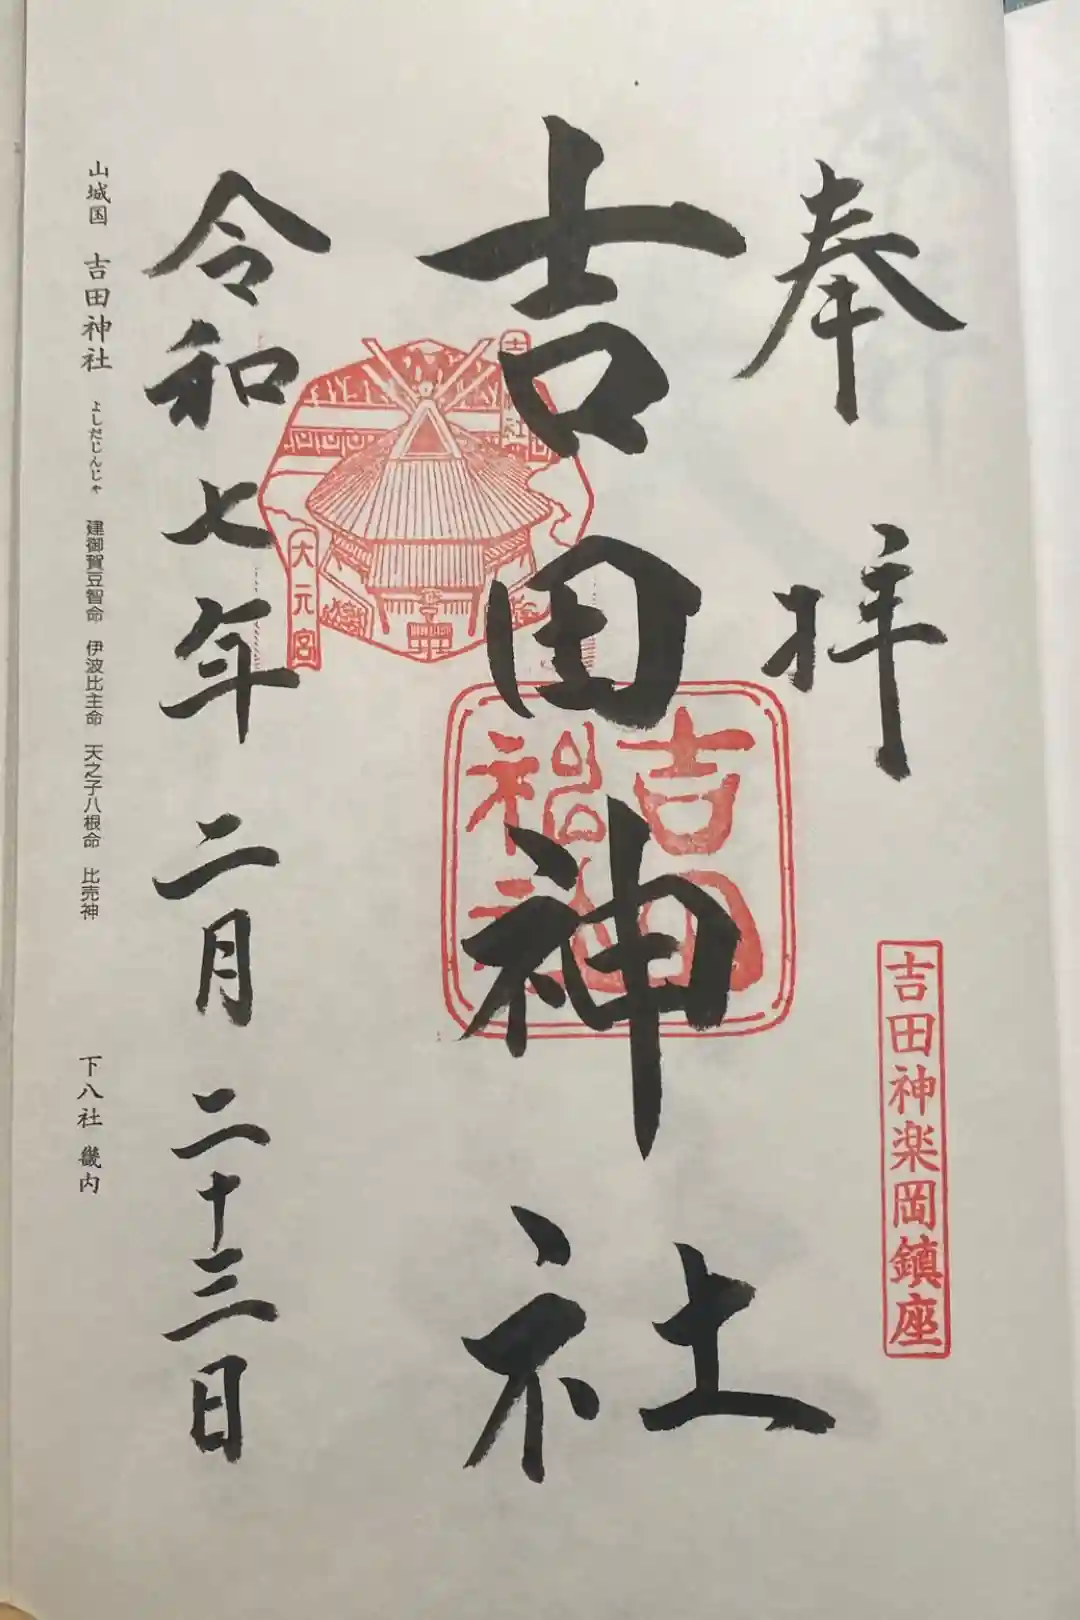 奉拝
吉田神楽岡鎮座
吉田神社
吉田
大元宮
令和七年 二月 二十三日
山城国 吉田神社 よしだじんじゃ 建御賀豆智命 伊波比主命 天之子八根命 比売神 下八社 畿内